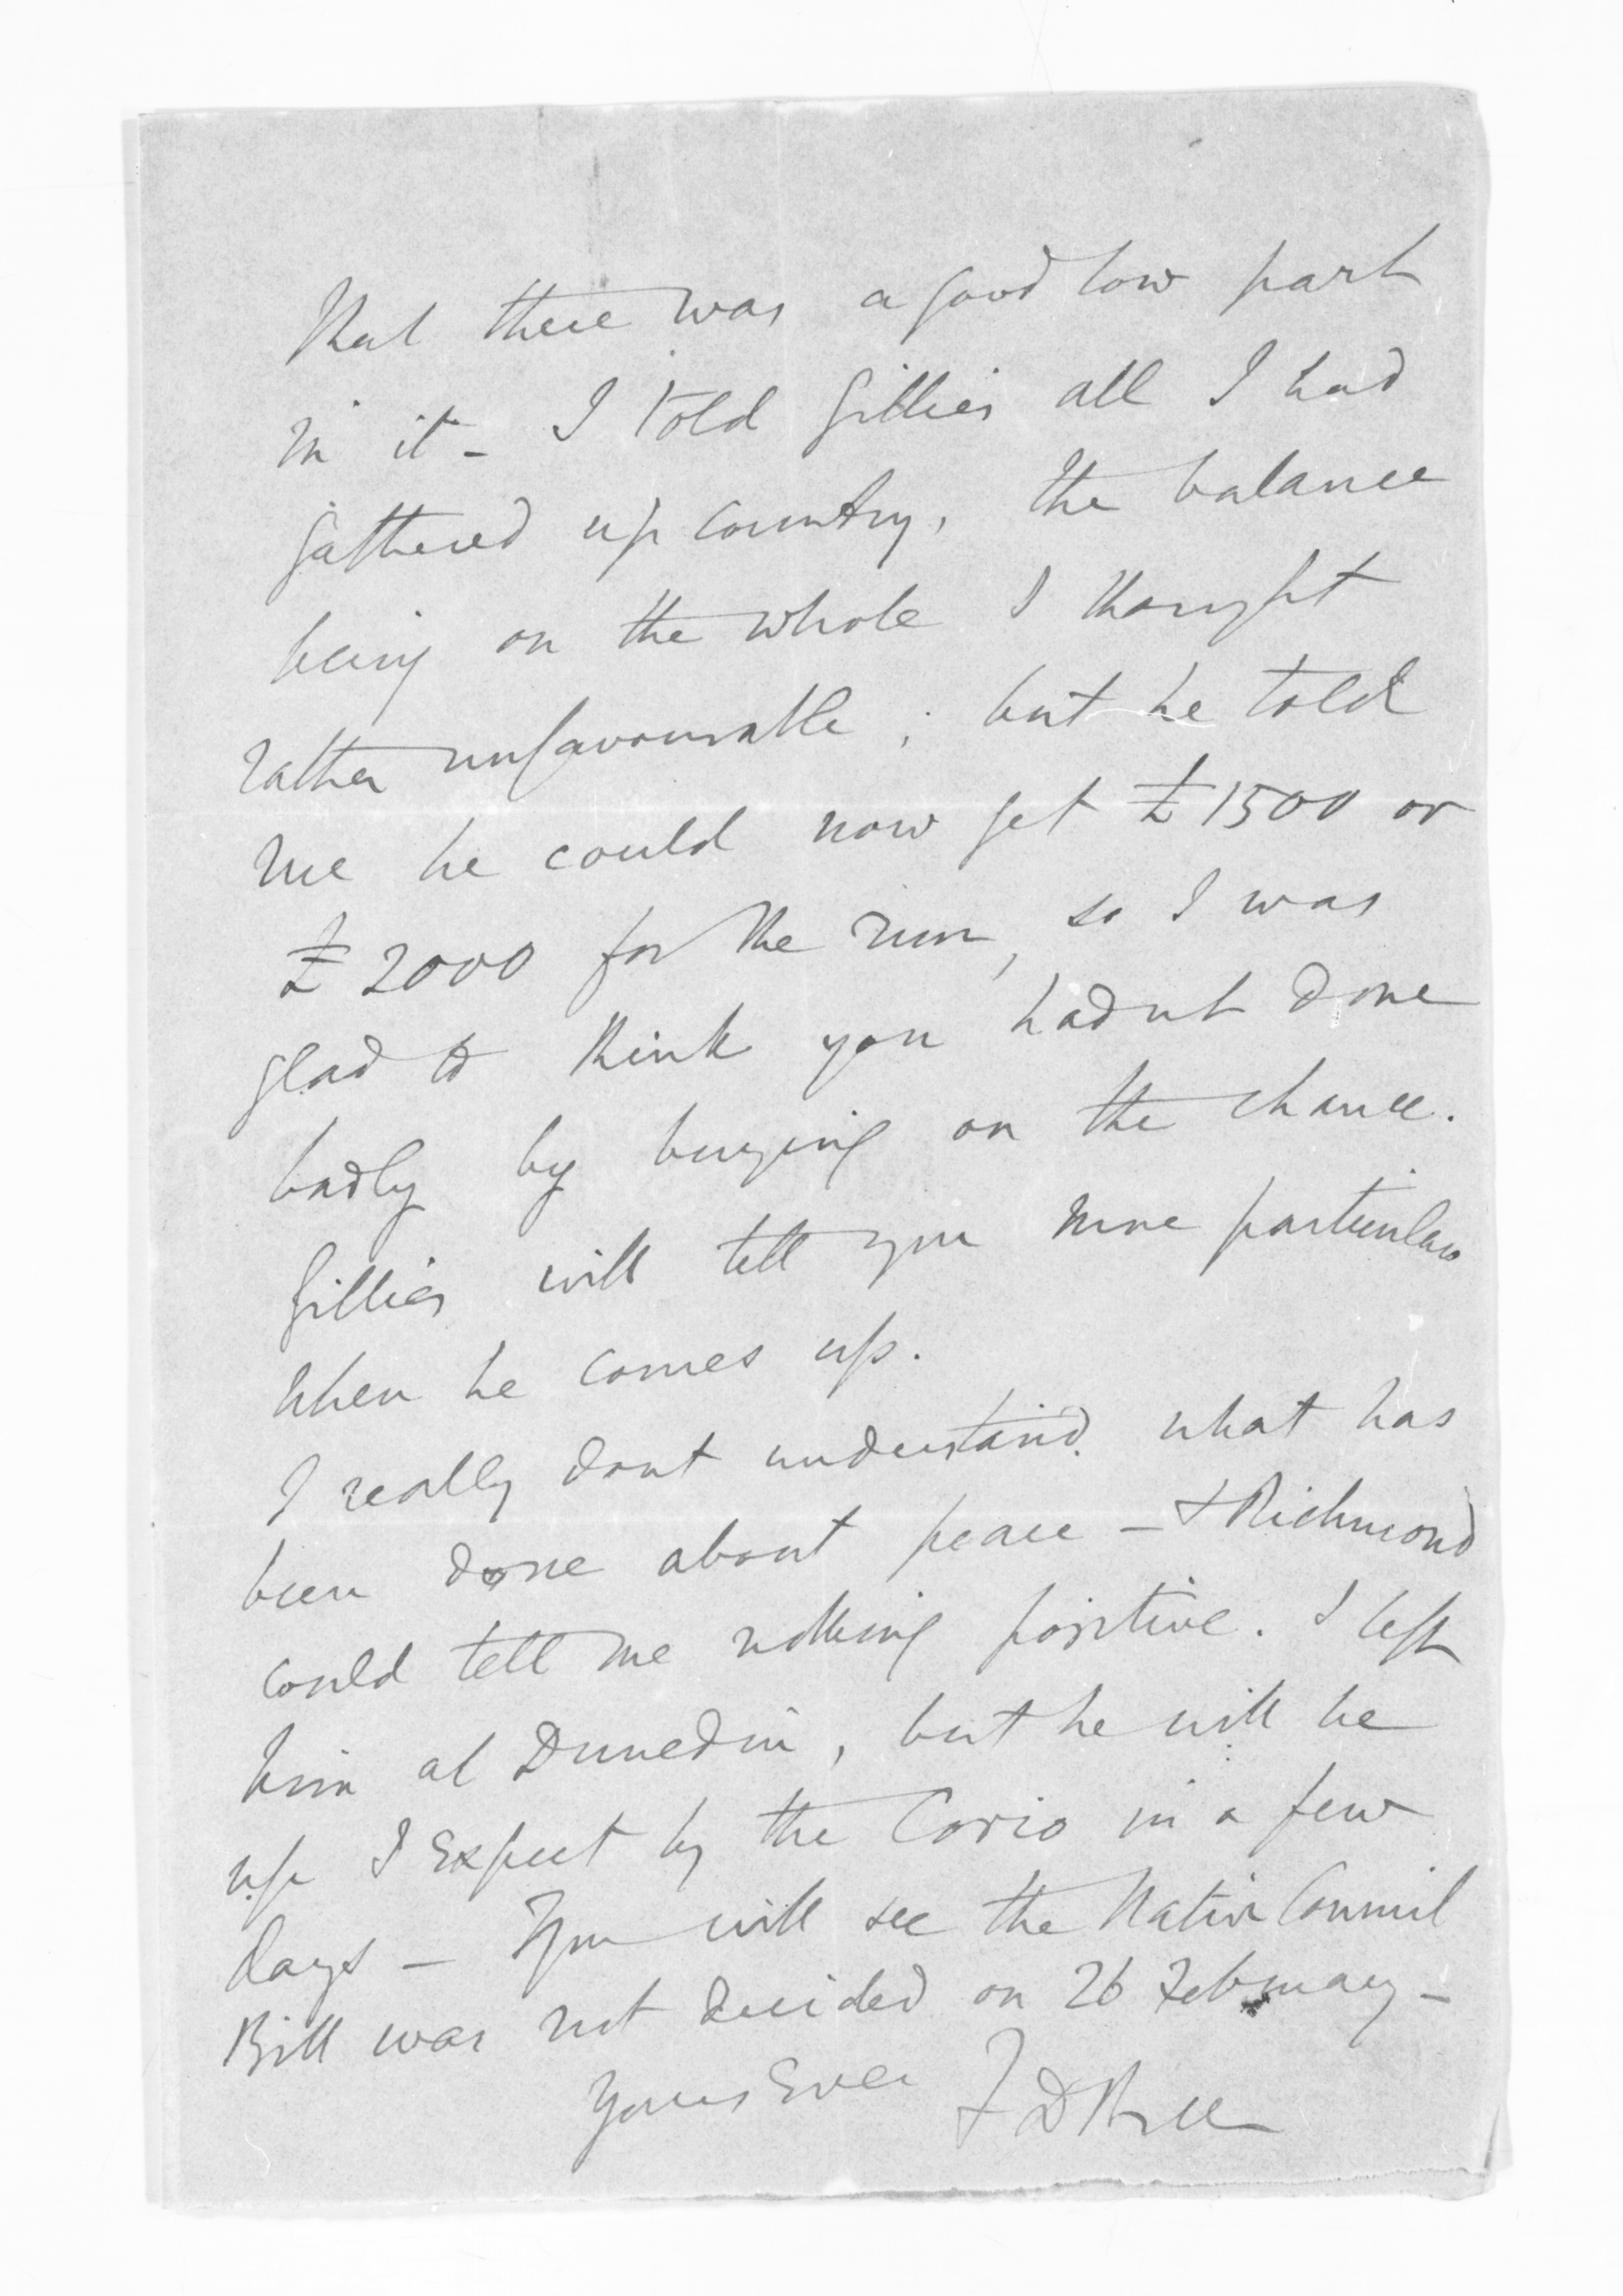 that there was a good low part
in it - I told Gillies all I had
gathered up country, the balance
being on the whole I thought
rather unfavourable; but he told
me he could now get £1500 or
£2000 for the run, so I was
glad to think you hadnt done
badly by buying on the chance.
Gillies will tell you more particulars
when he comes up.
I really dont understand what has
been done about peace - & Richmond
could tell me nothing positive. I left
him at Dunedin, but he will be
up I expect by the Corio in a few
days - You will see the Native Council
Bill was not decided on 26 February -
Yours Ever F D Bell